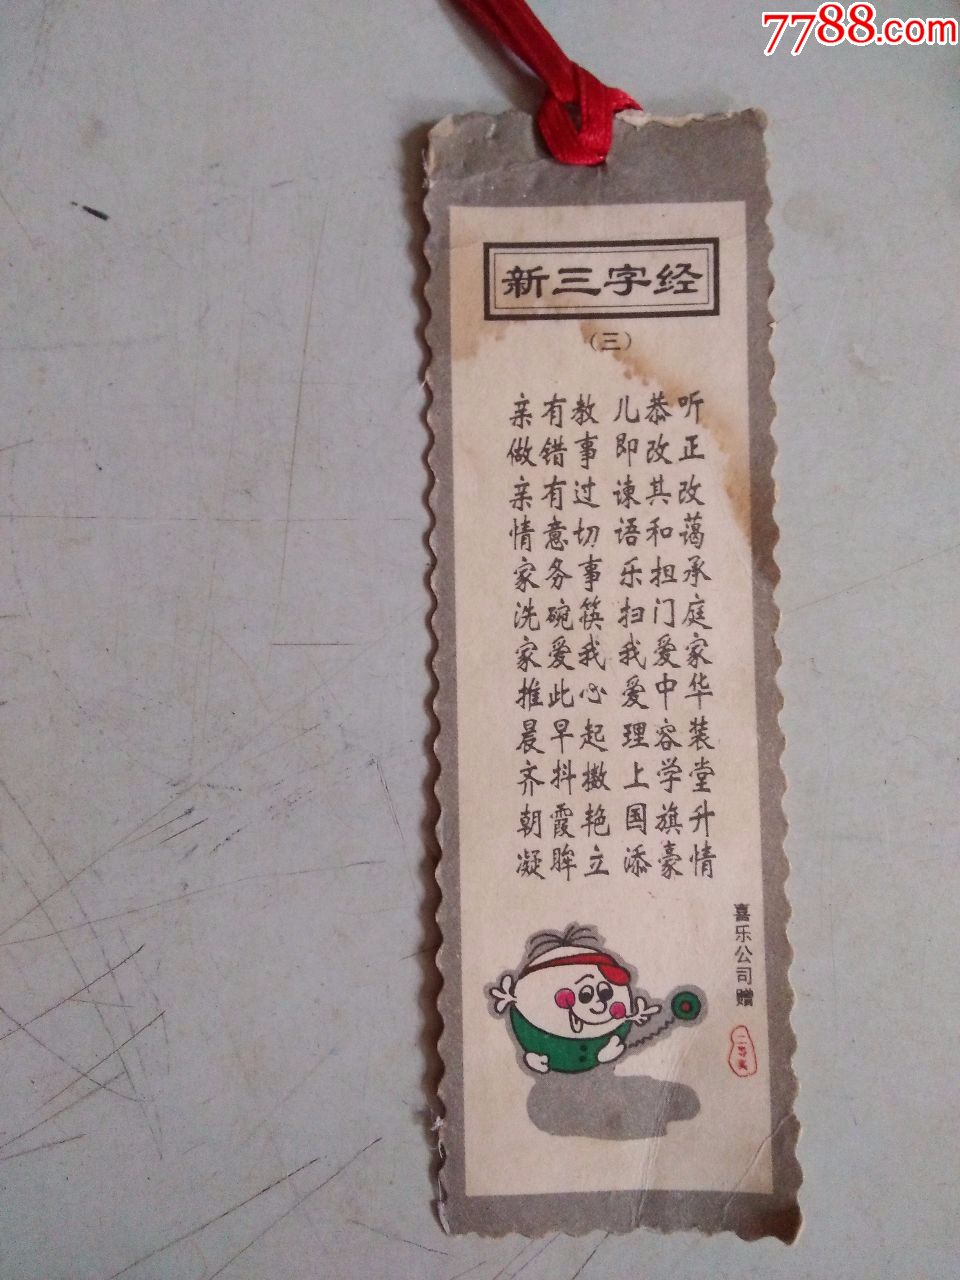 7788.com
新三字经
（三）
亲有教 儿恭听
做错事 即改正
亲有过 谏其改
情意切 语和蔼
家务事 乐担承
洗碗筷 扫门庭
家爱我 我爱家
推此心 爱中华
晨早起 理容装
齐抖擞 上学堂
朝霞艳 国旗升
凝眸立 添豪情
喜乐公司赠